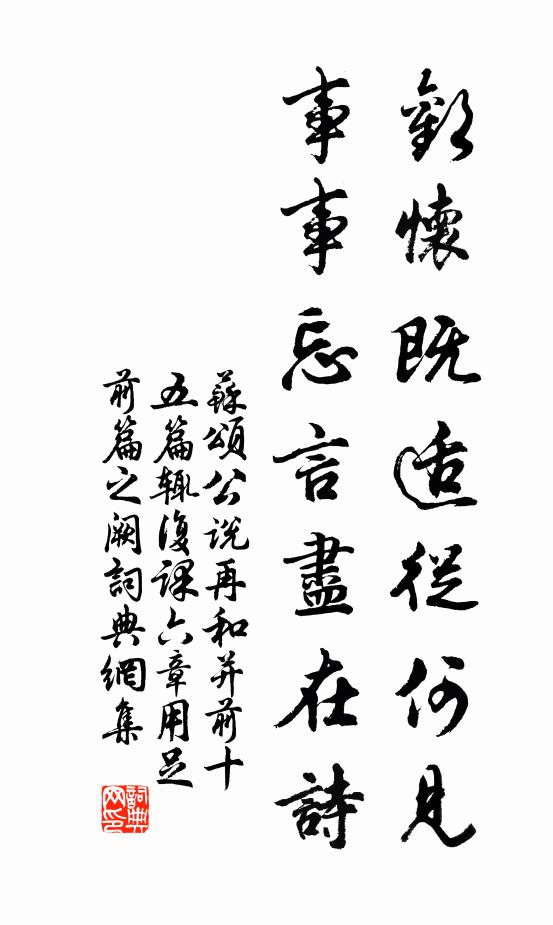 歡懷既适從何見
事事忘言盡在詩
蘇頌公说再和并前十
五篇輒復課六章用足
前篇之闕詞典網集
詞典网印